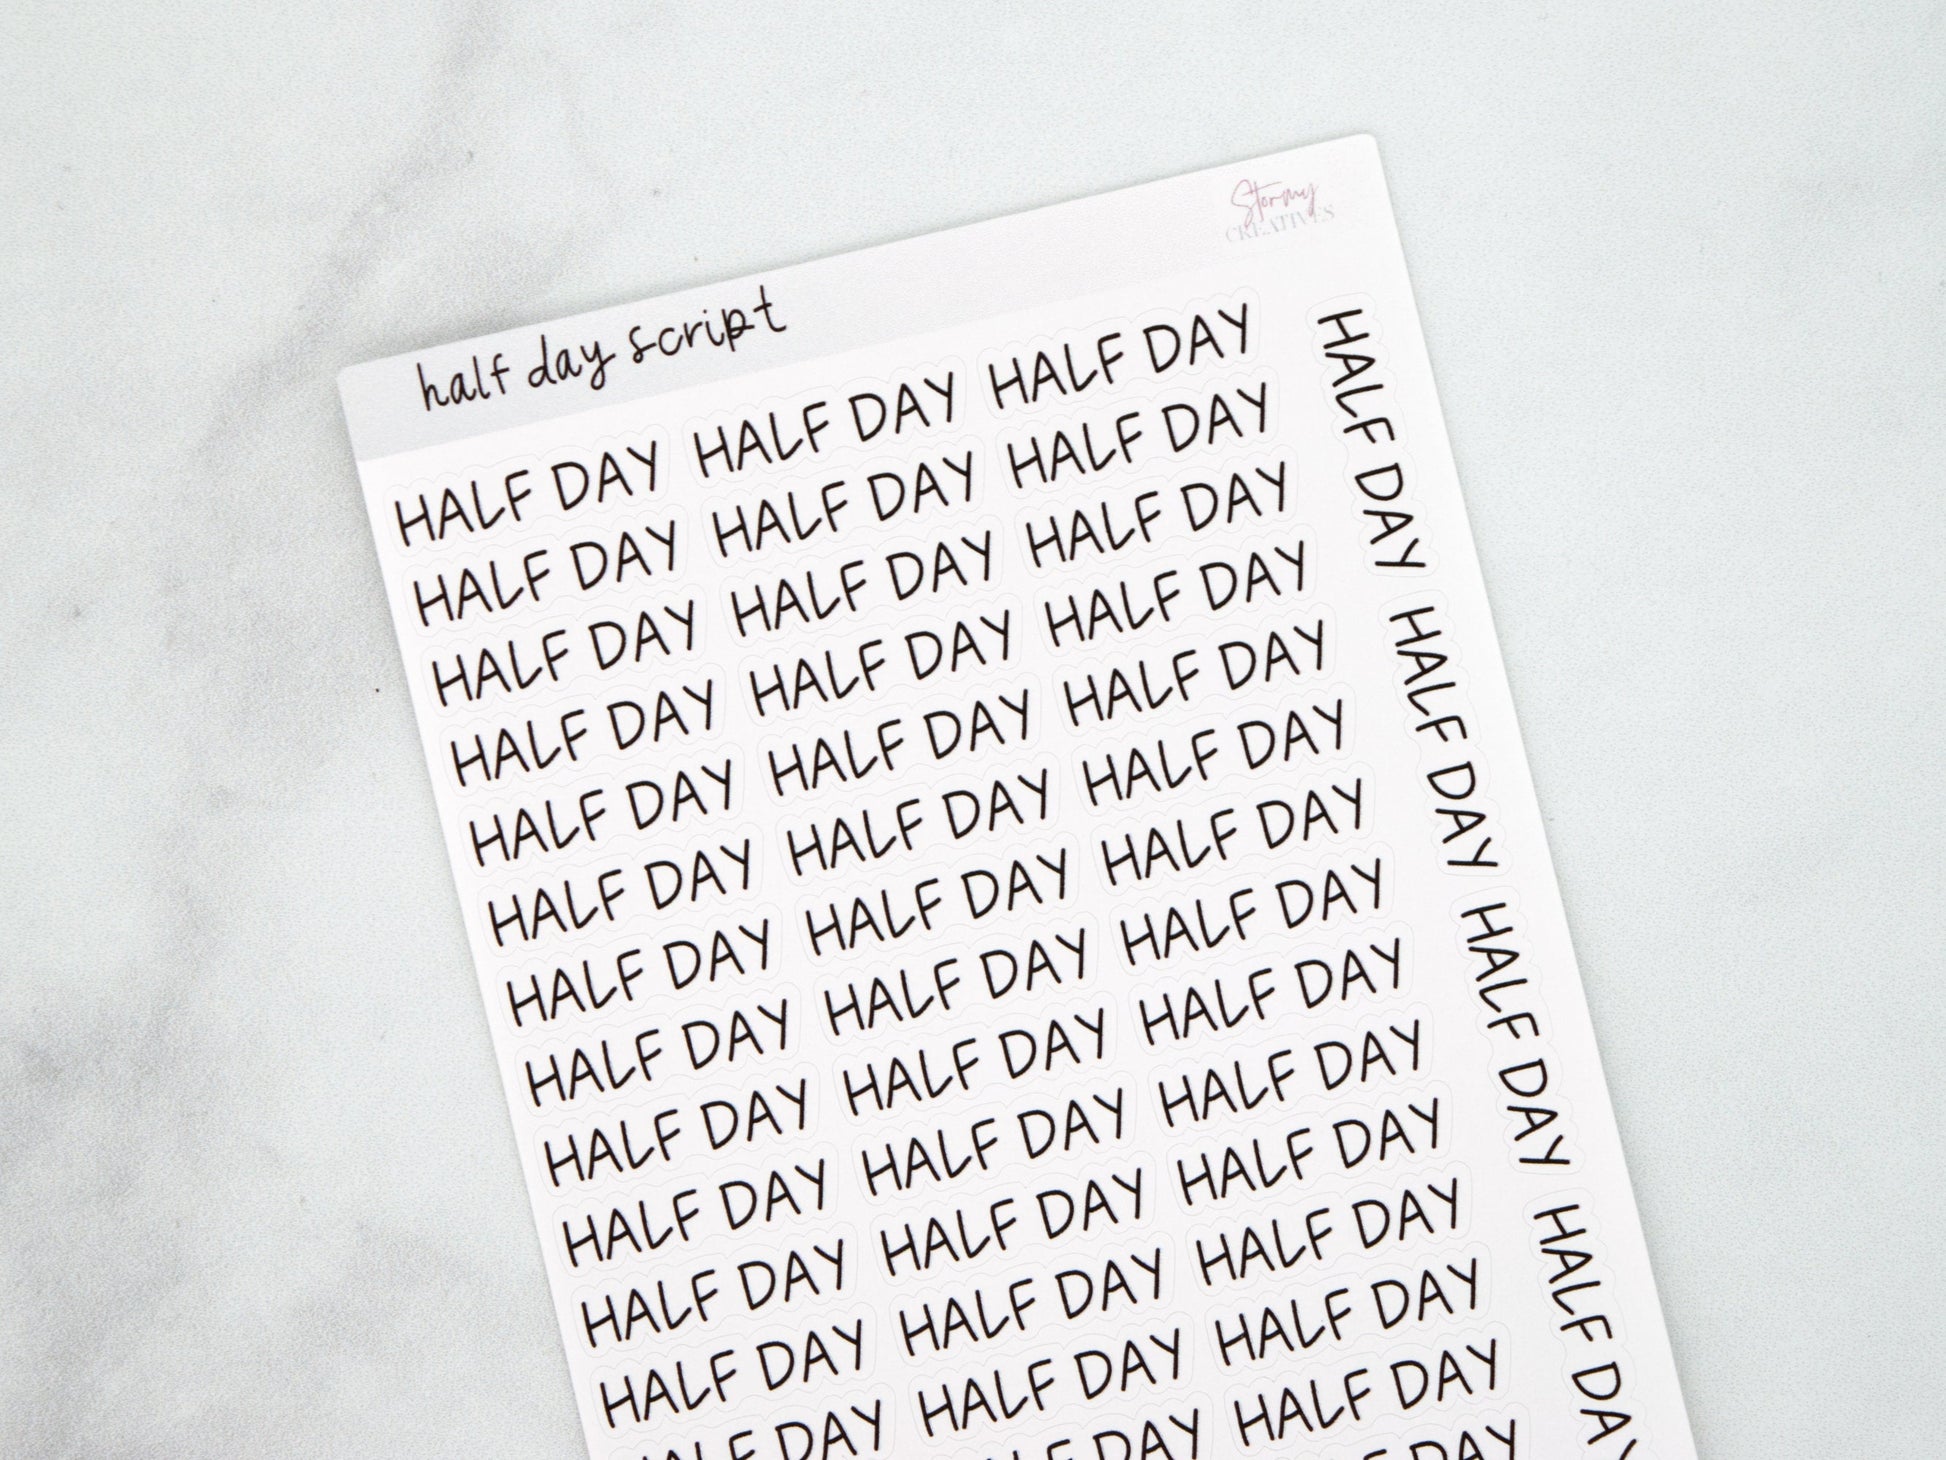 half day script
Stormy
CREATIVES
HALF DAY HALF DAY HALF DAY
HALF DAY HALF DAY HALF DAY
HALF DAY HALF DAY HALF DAY
HALF DAY HALF DAY HALF DAY
HALF DAY HALF DAY HALF DAY
HALF DAY HALF DAY HALF DAY
HALF DAY HALF DAY HALF DAY
HALF DAY HALF DAY HALF DAY
HALF DAY HALF DAY HALF DAY
HALF DAY HALF DAY HALF DAY
HALF DAY HALF DAY HALF DAY
HALF DAY HALF DAY HALF DAY
HALF DAY HALF DAY HALF DAY
HALF DAY HALF DAY
HALF DAY
HALF DAY
HALF DAY
HALF DAY
HALF DAY